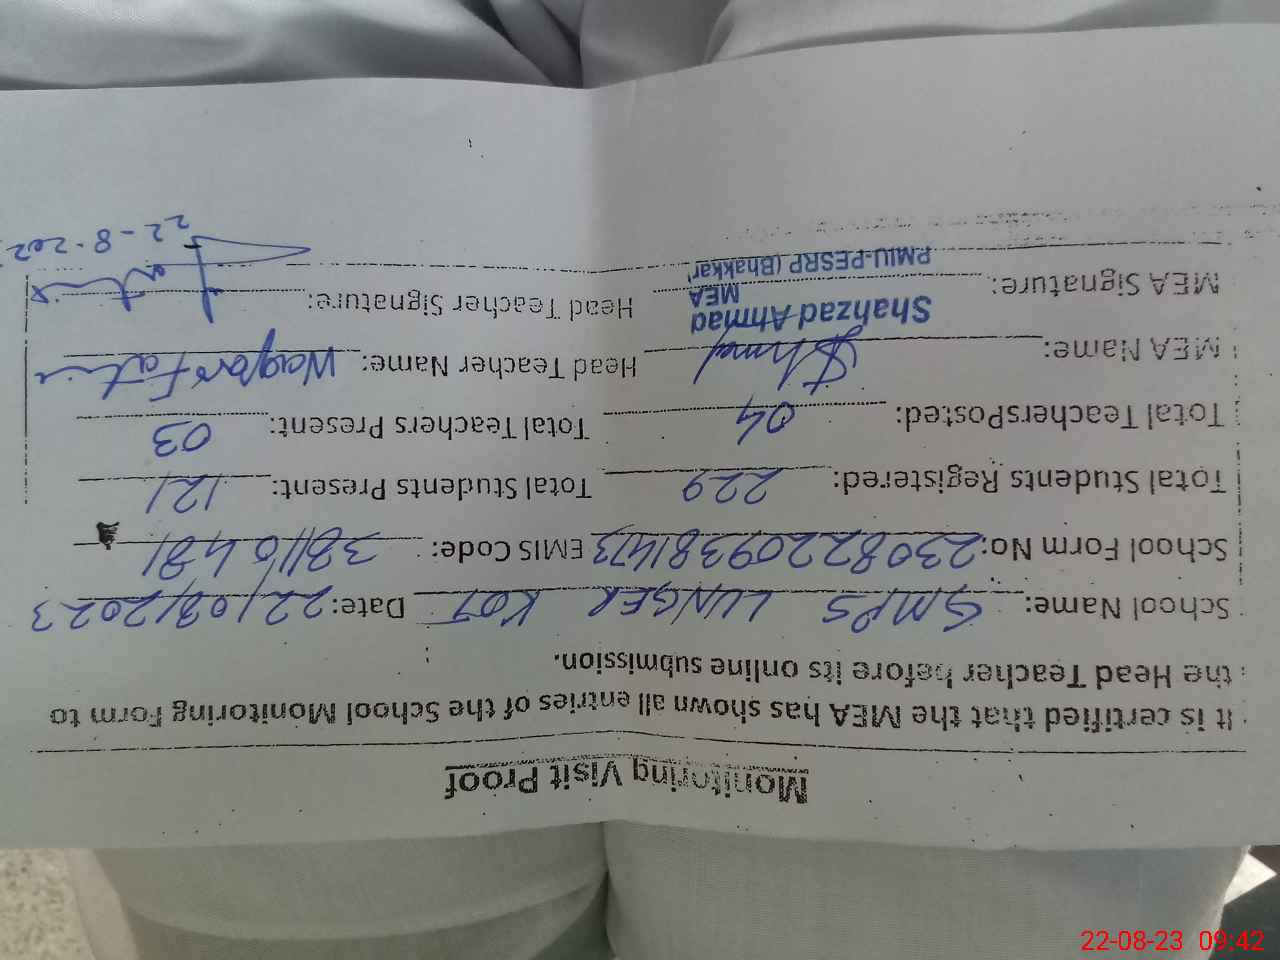 Monitoring Visit Proof
It is certified that the MEA has shown all entries of the School Monitoring Form to
the Head Teacher before its online submission.
School Name: GMPS LUNGER KOT Date: 22/08/2023
School Form No: 23082209381473 EMIS Code: 38110481
Total Students Registered: 229 Total Students Present: 121
Total TeachersPosted: 04 Total Teachers Present: 03
MEA Name: Head Teacher Name: Waqar Fatima
Shahzad Ahmad
MEA
MEA Signature: Head Teacher Signature:
PMIU-PESRP (Bhakkar)
22-8-202
22-08-23 09:42